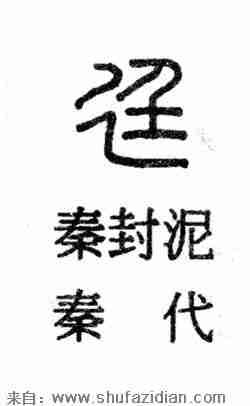 廷
秦封泥
秦 代
来自：www.shufazidian.com